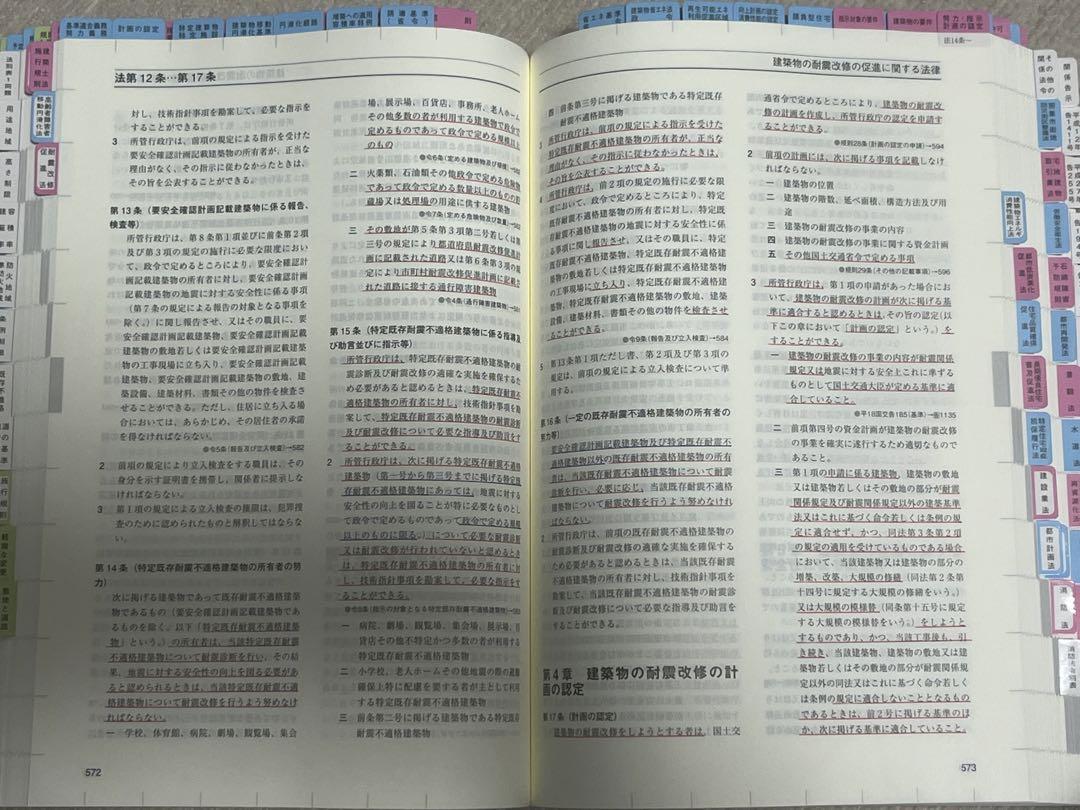 法第12条…第17条
対し、技術指針事項を勘案して、必要な指示を
することができる。
3 所管行政庁は、前項の規定による指示を受けた
要安全確認計画記載建築物の所有者が、正当な
理由がなく、その指示に従わなかったときは、
その旨を公表することができる。
第13条（要安全確認計画記載建築物に係る報告、
検査等）
所管行政庁は、第8条第1項並びに前条第2項
及び第3項の規定の施行に必要な限度におい
て、政令で定めるところにより、要安全確認計画
記載建築物の所有者に対し、要安全確認計画
記載建築物の地震に対する安全性に係る事項
（第7条の規定による報告の対象となる事項を
除く。）に関し報告させ、又はその職員に、要
安全確認計画記載建築物、要安全確認計画記載
建築物の敷地若しくは要安全確認計画記載建築
物の工事現場に立ち入り、要安全確認計画記載
建築物、要安全確認計画記載建築物の敷地、建
築設備、建築材料、書類その他の物件を検査さ
せることができる。ただし、住居に立ち入る場
合においては、あらかじめ、その居住者の承諾
を得なければならない。
●令5条（報告及び立入検査）→582
2 前項の規定により立入検査をする職員は、その
身分を示す証明書を携帯し、関係者に提示しな
ければならない。
3 第1項の規定による立入検査の権限は、犯罪捜
査のために認められたものと解釈してはならな
い。
第14条（特定既存耐震不適格建築物の所有者の努
力）
次に掲げる建築物であって既存耐震不適格建築
物であるもの（要安全確認計画記載建築物であ
るものを除く。以下「特定既存耐震不適格建築
物」という。）の所有者は、当該特定既存耐震
不適格建築物について耐震診断を行い、その結
果、地震に対する安全性の向上を図る必要があ
ると認められるときは、当該特定既存耐震不適
格建築物について耐震改修を行うよう努めなけ
ればならない。
一 学校、体育館、病院、劇場、観覧場、集会
場、展示場、百貨店、事務所、老人ホーム
その他多数の者が利用する建築物で政令で
定めるものであって政令で定める規模以上
のもの
二 火薬類、石油類その他政令で定める危険物
であって政令で定める数量以上のものの貯
蔵場又は処理場の用途に供する建築物
●令7条（定める危険物及び数量）
三 その敷地が第5条第3項第二号若しくは第
三号の規定により都道府県耐震改修促進計画
に記載された道路又は第6条第3項の規
定により市町村耐震改修促進計画に記載さ
れた道路に接する通行障害建築物
●令4条（通行障害建築物）
第15条（特定既存耐震不適格建築物に係る指導及
び助言並びに指示等）
所管行政庁は、特定既存耐震不適格建築物の耐
震診断及び耐震改修の適確な実施を確保するた
め必要があると認めるときは、特定既存耐震不
適格建築物の所有者に対し、技術指針事項を勘
案して、特定既存耐震不適格建築物の耐震診断
及び耐震改修について必要な指導及び助言をす
ることができる。
2 所管行政庁は、次に掲げる特定既存耐震不適格
建築物（第一号から第三号までに掲げる特定既
存耐震不適格建築物にあっては、地震に対する
安全性の向上を図ることが特に必要なものとし
て政令で定めるものであって政令で定める規模
以上のものに限る。）について必要な耐震診断
又は耐震改修が行われていないと認めるときは、
特定既存耐震不適格建築物の所有者に対
し、技術指針事項を勘案して、必要な指示をす
ることができる。
●令8条（指示の対象となる特定既存耐震不適格建築物）
一 病院、劇場、観覧場、集会場、展示場、百
貨店その他不特定かつ多数の者が利用する
特定既存耐震不適格建築物
二 小学校、老人ホームその他地震の際の避難
確保上特に配慮を要する者が主として利用
する特定既存耐震不適格建築物
三 前条第二号に掲げる建築物である特定既存
耐震不適格建築物
572
法14条〜
建築物の耐震改修の促進に関する法律
四 前条第三号に掲げる建築物である特定既存
耐震不適格建築物
3 所管行政庁は、前項の規定による指示を受けた
特定既存耐震不適格建築物の所有者が、正当な
理由がなく、その指示に従わなかったときは、
その旨を公表することができる。
4 所管行政庁は、前2項の規定の施行に必要な限
度において、政令で定めるところにより、特定
既存耐震不適格建築物の所有者に対し、特定既
存耐震不適格建築物の地震に対する安全性に係
る事項に関し報告させ、又はその職員に、特定
既存耐震不適格建築物、特定既存耐震不適格建
築物の敷地若しくは特定既存耐震不適格建築物
の工事現場に立ち入り、特定既存耐震不適格建
築物、特定既存耐震不適格建築物の敷地、建築
設備、建築材料、書類その他の物件を検査させ
ることができる。
●令9条（報告及び立入検査）→584
5 第13条第1項ただし書、第2項及び第3項の
規定は、前項の規定による立入検査について準
用する。
第16条（一定の既存耐震不適格建築物の所有者の
努力等）
要安全確認計画記載建築物及び特定既存耐震不
適格建築物以外の既存耐震不適格建築物の所有
者は、当該既存耐震不適格建築物について耐震
診断を行い、必要に応じ、当該既存耐震不適格
建築物について耐震改修を行うよう努めなけれ
ばならない。
2 所管行政庁は、前項の既存耐震不適格建築物の
耐震診断及び耐震改修の適確な実施を確保する
ため必要があると認めるときは、当該既存耐震
不適格建築物の所有者に対し、技術指針事項を
勘案して、当該既存耐震不適格建築物の耐震診
断及び耐震改修について必要な指導及び助言を
することができる。
第4章 建築物の耐震改修の計
画の認定
第17条（計画の認定）
建築物の耐震改修をしようとする者は、国土交
通省令で定めるところにより、建築物の耐震改
修の計画を作成し、所管行政庁の認定を申請す
ることができる。
●規則28条（計画の認定の申請）→594
2 前項の計画には、次に掲げる事項を記載しなけ
ればならない。
一 建築物の位置
二 建築物の階数、延べ面積、構造方法及び用
途
三 建築物の耐震改修の事業の内容
四 建築物の耐震改修の事業に関する資金計画
五 その他国土交通省令で定める事項
●規則29条（その他の記載事項）→596
3 所管行政庁は、第1項の申請があった場合にお
いて、建築物の耐震改修の計画が次に掲げる基
準に適合すると認めるときは、その旨の認定（以
下この章において「計画の認定」という。）を
することができる。
一 建築物の耐震改修の事業の内容が耐震関係
規定又は地震に対する安全上これに準ずる
ものとして国土交通大臣が定める基準に適
合していること。
●平18国交告185（基準）→告1135
二 前項第四号の資金計画が建築物の耐震改修
の事業を確実に遂行するため適切なもので
あること。
三 第1項の申請に係る建築物、建築物の敷地
又は建築物若しくはその敷地の部分が耐震
関係規定及び耐震関係規定以外の建築基準
法又はこれに基づく命令若しくは条例の規
定に適合せず、かつ、同法第3条第2項
の規定の適用を受けているものである場合
において、当該建築物又は建築物の部分の
増築、改築、大規模の修繕（同法第2条第
十四号に規定する大規模の修繕をいう。）
又は大規模の模様替（同条第十五号に規定
する大規模の模様替をいう。）をしようと
するものであり、かつ、当該工事後も、引
き続き、当該建築物、建築物の敷地又は建
築物若しくはその敷地の部分が耐震関係規
定以外の同法又はこれに基づく命令若しく
は条例の規定に適合しないこととなるもの
であるときは、前2号に掲げる基準のほ
か、次に掲げる基準に適合していること。
573